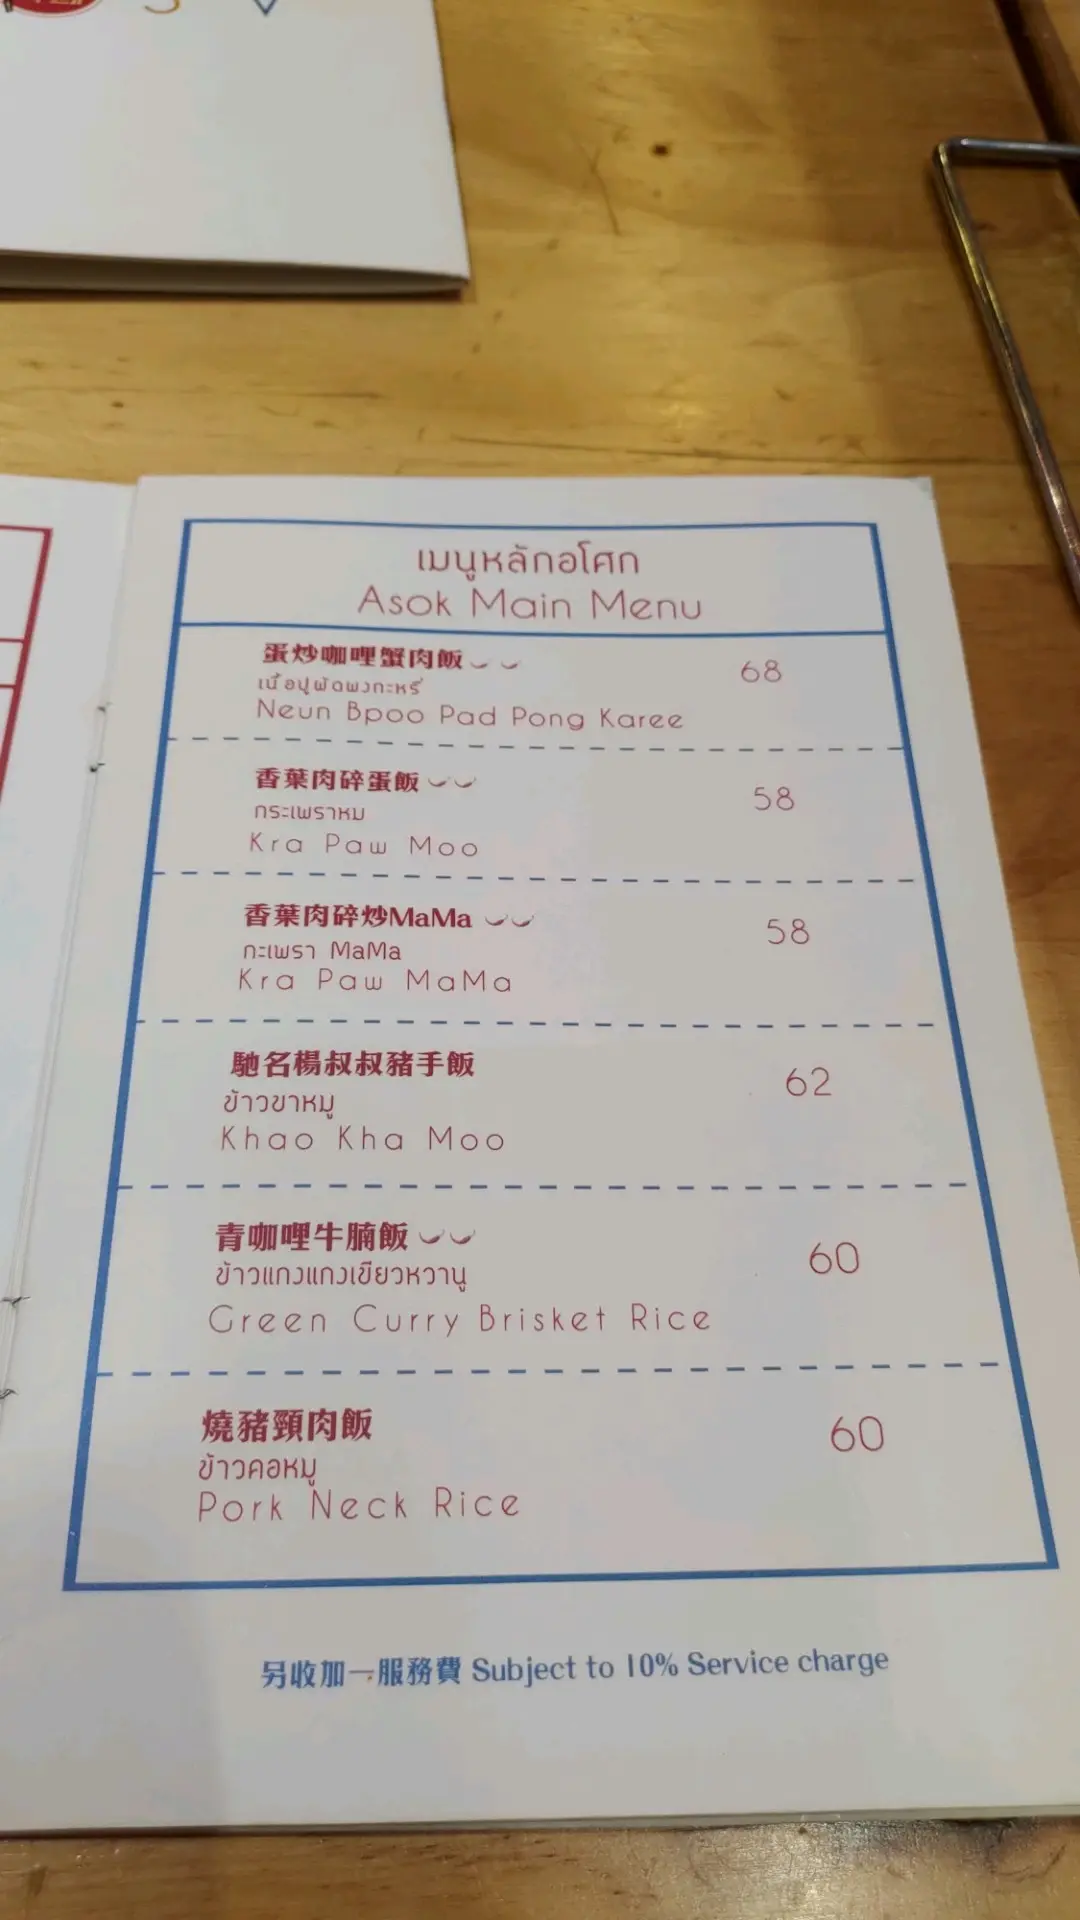 เมนูหลักอโศก
Asok Main Menu
蛋炒咖哩蟹肉飯
68
เนื้อปูผัดผงกะหรี่
Neun Bpoo Pad Pong Karee
香葉肉碎蛋飯
58
กระเพราหม
Kra Paw Moo
香葉肉碎炒MaMa
58
กะเพรา MaMa
Kra Paw MaMa
馳名楊叔叔豬手飯
62
ข้าวขาหมู
Khao Kha Moo
青咖哩牛腩飯
60
ข้าวแกงแกงเขียวหวานู
Green Curry Brisket Rice
燒豬頸肉飯
60
ข้าวคอหมู
Pork Neck Rice
另收加一服務費 Subject to 10% Service charge